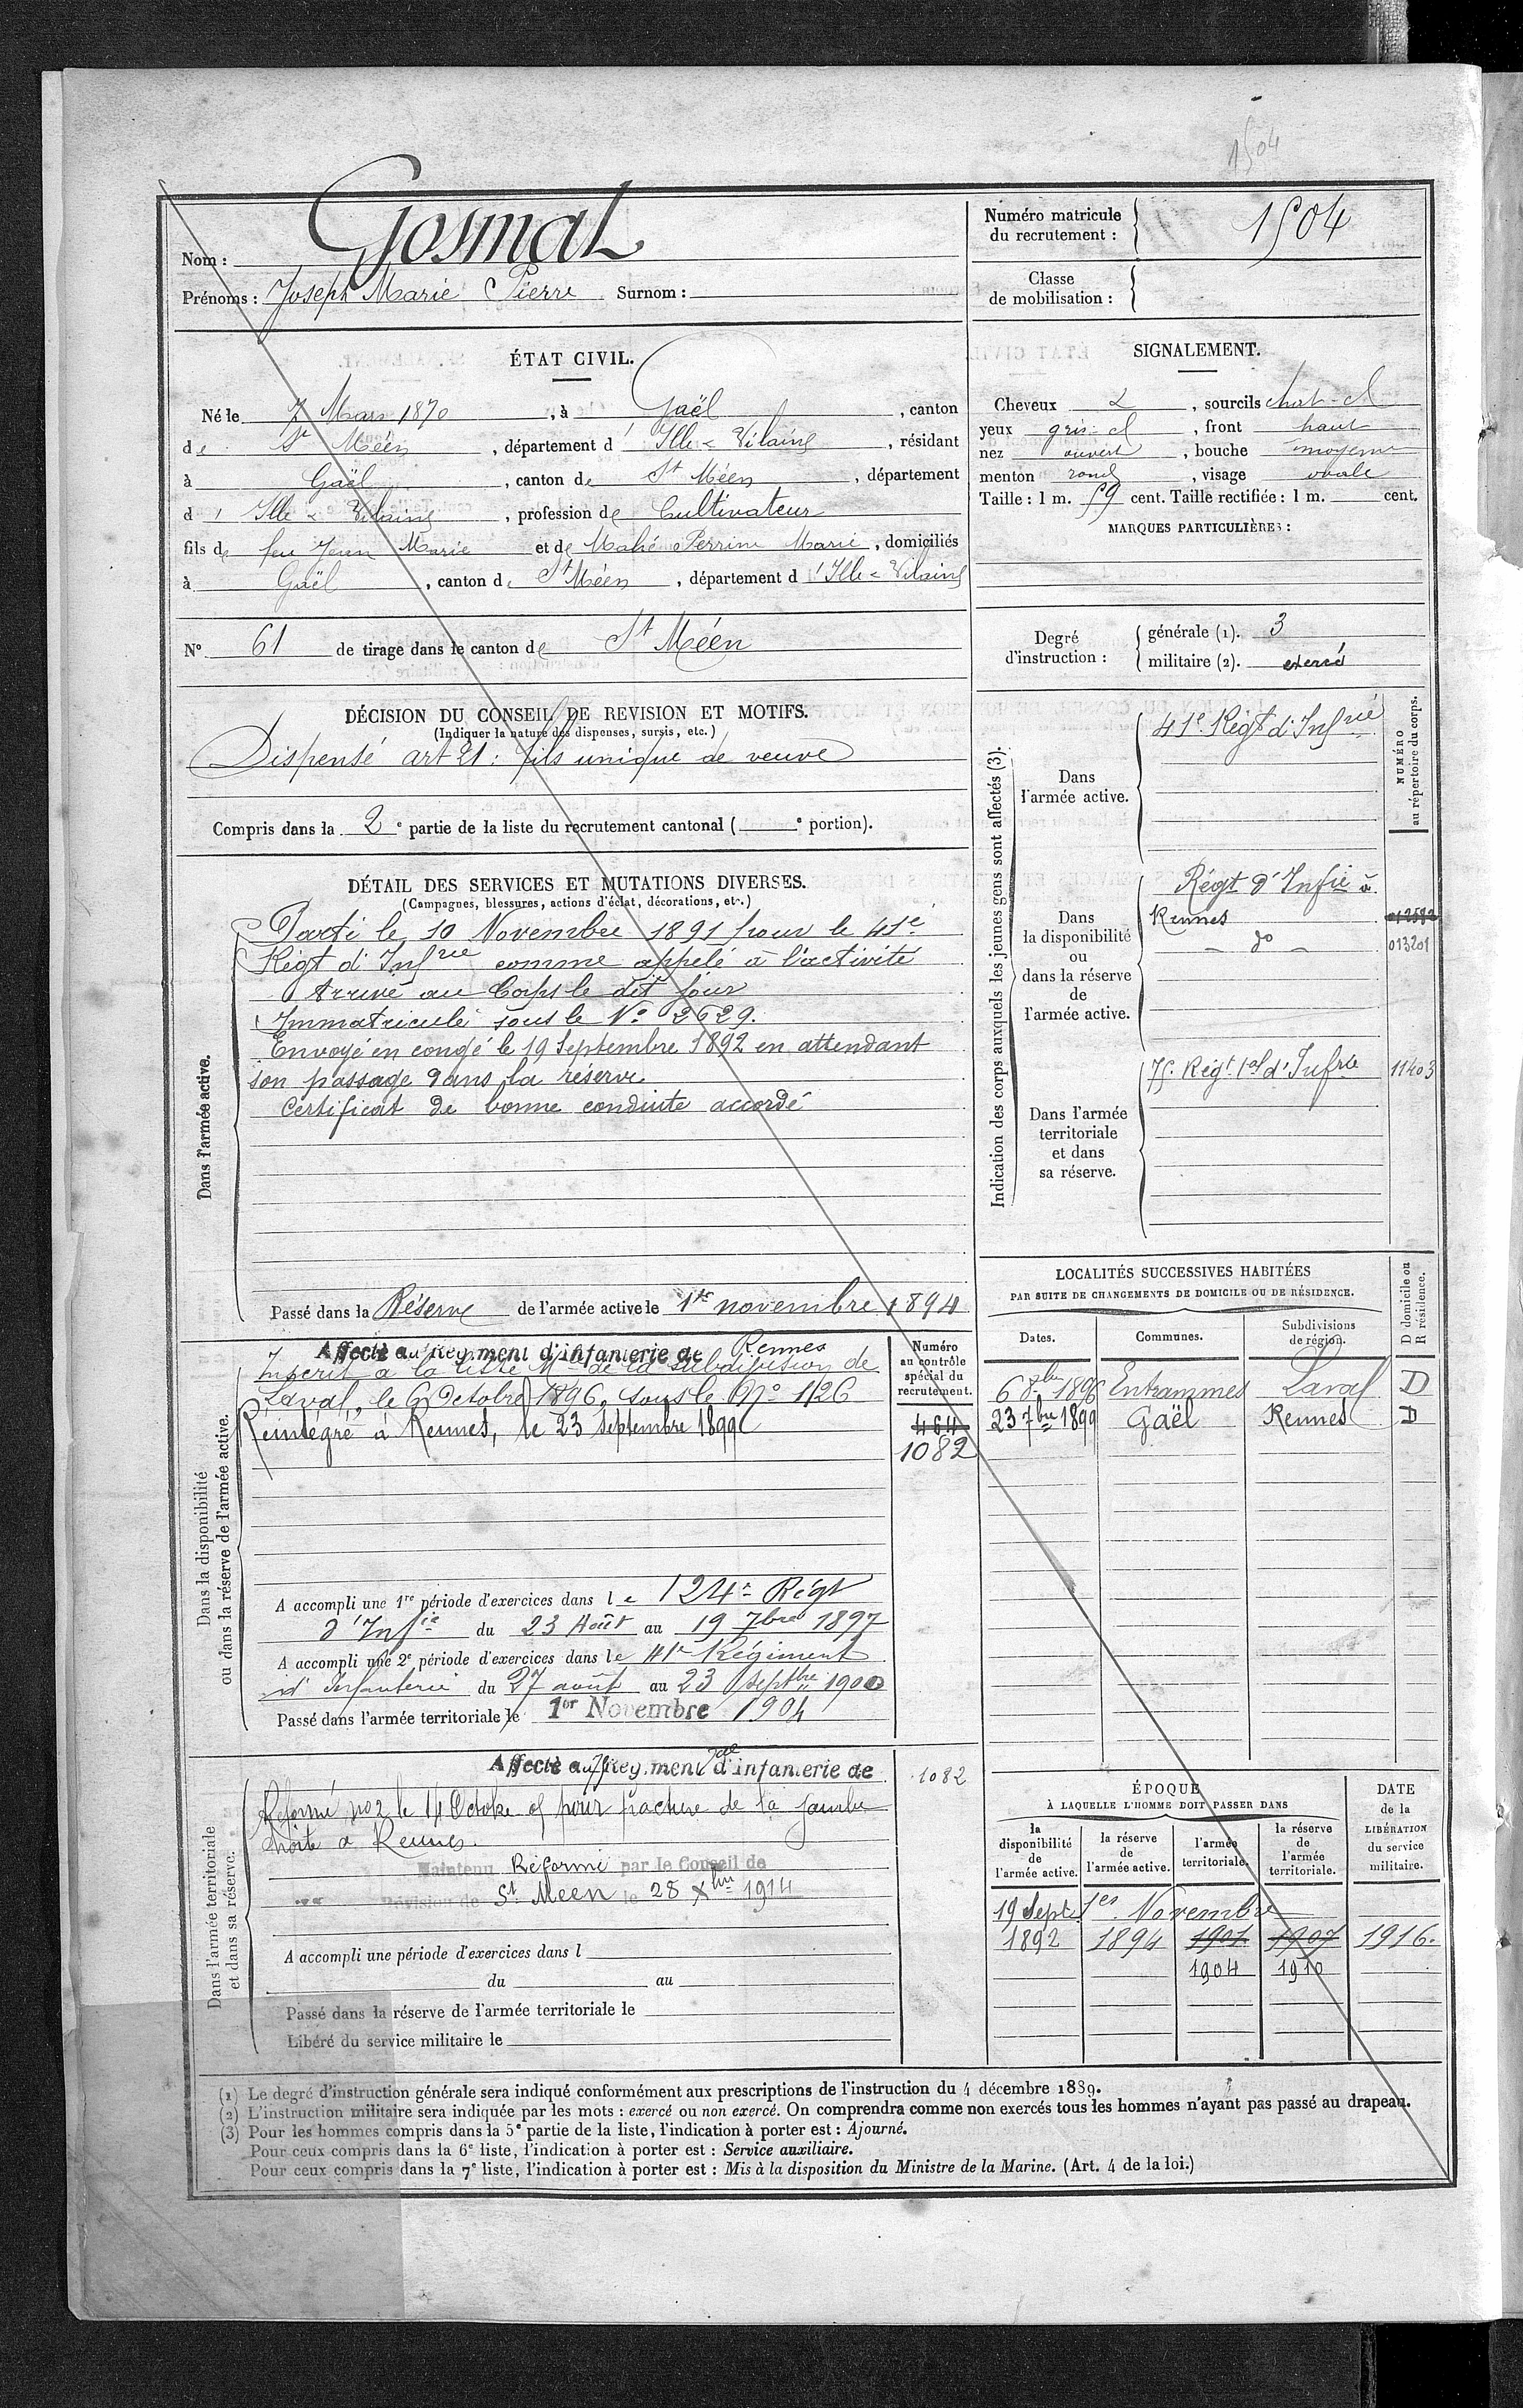 1504
Nom : Gosmat
Prénoms : Joseph Marie Pierre Surnom :
Numéro matricule du recrutement : 1504
Classe de mobilisation :
ÉTAT CIVIL.
Né le 7 Mars 1870, à Gaël, canton
de St Méen, département d' Ille & Vilaine, résidant
à Gaël, canton de St Méen, département
d' Ille & Vilaine, profession de Cultivateur
fils de feu Jean Marie et de Mahé Perrine Marie, domiciliés
à Gaël, canton de St Méen, département d' Ille & Vilaine
N° 61 de tirage dans le canton de St Méen
SIGNALEMENT.
Cheveux &, sourcils chat-cl
yeux gris cl, front haut
nez ouvert, bouche moyenne
menton rond, visage ovale
Taille : 1 m. 59 cent. Taille rectifiée : 1 m. cent.
MARQUES PARTICULIÈRES :
Degré d'instruction :
générale (1). 3
militaire (2). exercé
DÉCISION DU CONSEIL DE REVISION ET MOTIFS.
(Indiquer la nature des dispenses, sursis, etc.)
Dispensé art 21 : fils unique de veuve
Compris dans la 2e partie de la liste du recrutement cantonal ( e portion).
DÉTAIL DES SERVICES ET MUTATIONS DIVERSES.
(Campagnes, blessures, actions d'éclat, décorations, etc.)
Dans l'armée active.
Parti le 10 Novembre 1891 pour le 41e
Régt d'Infrie comme appelé à l'activité
Arrivé au Corps le dit jour
Immatriculé sous le N° 2629.
Envoyé en congé le 19 Septembre 1892 en attendant
son passage dans la réserve.
Certificat de bonne conduite accordé
Passé dans la Réserve de l'armée active le 1er novembre 1894
Indication des corps auxquels les jeunes gens sont affectés (3).
NUMÉRO au répertoire du corps.
Dans l'armée active.
41e Régt d'Infrie
Dans la disponibilité ou dans la réserve de l'armée active.
Régt d'Infie à
Rennes 012582
- do - 013201
Dans l'armée territoriale et dans sa réserve.
75e Régt tal d'Infrie 11403
LOCALITÉS SUCCESSIVES HABITÉES
PAR SUITE DE CHANGEMENTS DE DOMICILE OU DE RÉSIDENCE.
Dates. Communes. Subdivisions de région. D domicile ou R résidence.
6 8bre 1896 Entrammes Laval D
23 7bre 1899 Gaël Rennes D
Dans la disponibilité ou dans la réserve de l'armée active.
Affecté au Régiment d'infanterie de Rennes
Inscrit à la liste Mle de la subdivision de
Laval, le 6 Octobre 1896, sous le N° 1126
Réintégré à Rennes, le 23 Septembre 1899
Numéro au contrôle spécial du recrutement.
464
1082
A accompli une 1re période d'exercices dans le 124e Régt
d'Infie du 23 Août au 19 7bre 1897
A accompli une 2e période d'exercices dans le 41e Régiment
d'Infanterie du 27 août au 23 Septbre 1900
Passé dans l'armée territoriale le 1er Novembre 1904
Dans l'armée territoriale et dans sa réserve.
Affecté au 75 Régiment tal d'infanterie de
1082
Réformé no 2 le 14 Octobre 05 pour fracture de la jambe
droite à Rennes.
Maintenu Réformé par le Conseil de
Révision de St Méen le 28 Xbre 1914
A accompli une période d'exercices dans l
du au
Passé dans la réserve de l'armée territoriale le
Libéré du service militaire le
ÉPOQUE
À LAQUELLE L'HOMME DOIT PASSER DANS
la disponibilité de l'armée active. la réserve de l'armée active. l'armée territoriale. la réserve de l'armée territoriale.
DATE de la LIBÉRATION du service militaire.
19 Sept. 1er Novembre
1892 1894 1901 1907 1916.
1904 1910
(1) Le degré d'instruction générale sera indiqué conformément aux prescriptions de l'instruction du 4 décembre 1889.
(2) L'instruction militaire sera indiquée par les mots : exercé ou non exercé. On comprendra comme non exercés tous les hommes n'ayant pas passé au drapeau.
(3) Pour les hommes compris dans la 5e partie de la liste, l'indication à porter est : Ajourné.
Pour ceux compris dans la 6e liste, l'indication à porter est : Service auxiliaire.
Pour ceux compris dans la 7e liste, l'indication à porter est : Mis à la disposition du Ministre de la Marine. (Art. 4 de la loi.)